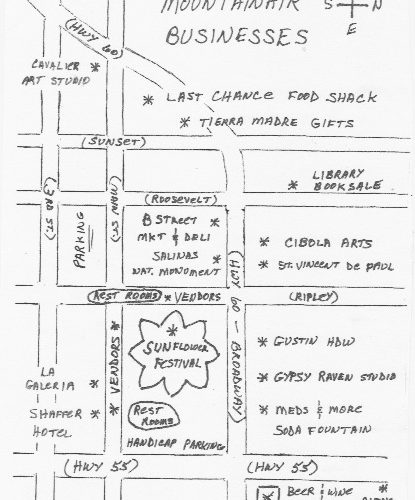 MOUNTAINAIR
BUSINESSES
S N
E
(HWY 60)
CAVALIER
ART STUDIO *
* LAST CHANCE FOOD SHACK
* TIERRA MADRE GIFTS
(SUNSET)
LIBRARY
* BOOKSALE
(3RD ST.)
(MAIN ST.)
(ROOSEVELT)
PARKING
B STREET *
MKT & DELI
SALINAS *
NAT. MONUMENT
* CIBOLA ARTS
* ST. VINCENT DE PAUL
(HWY 60 - BROADWAY)
REST ROOMS * VENDORS
(RIPLEY)
* VENDORS *
*
SUNFLOWER
FESTIVAL
* GUSTIN HDW
* GYPSY RAVEN STUDIO
* MEDS & MORE
SODA FOUNTAIN
LA
GALERIA *
SHAFFER *
HOTEL
REST
ROOMS
HANDICAP PARKING
(HWY 55)
(HWY 55)
* BEER & WINE *